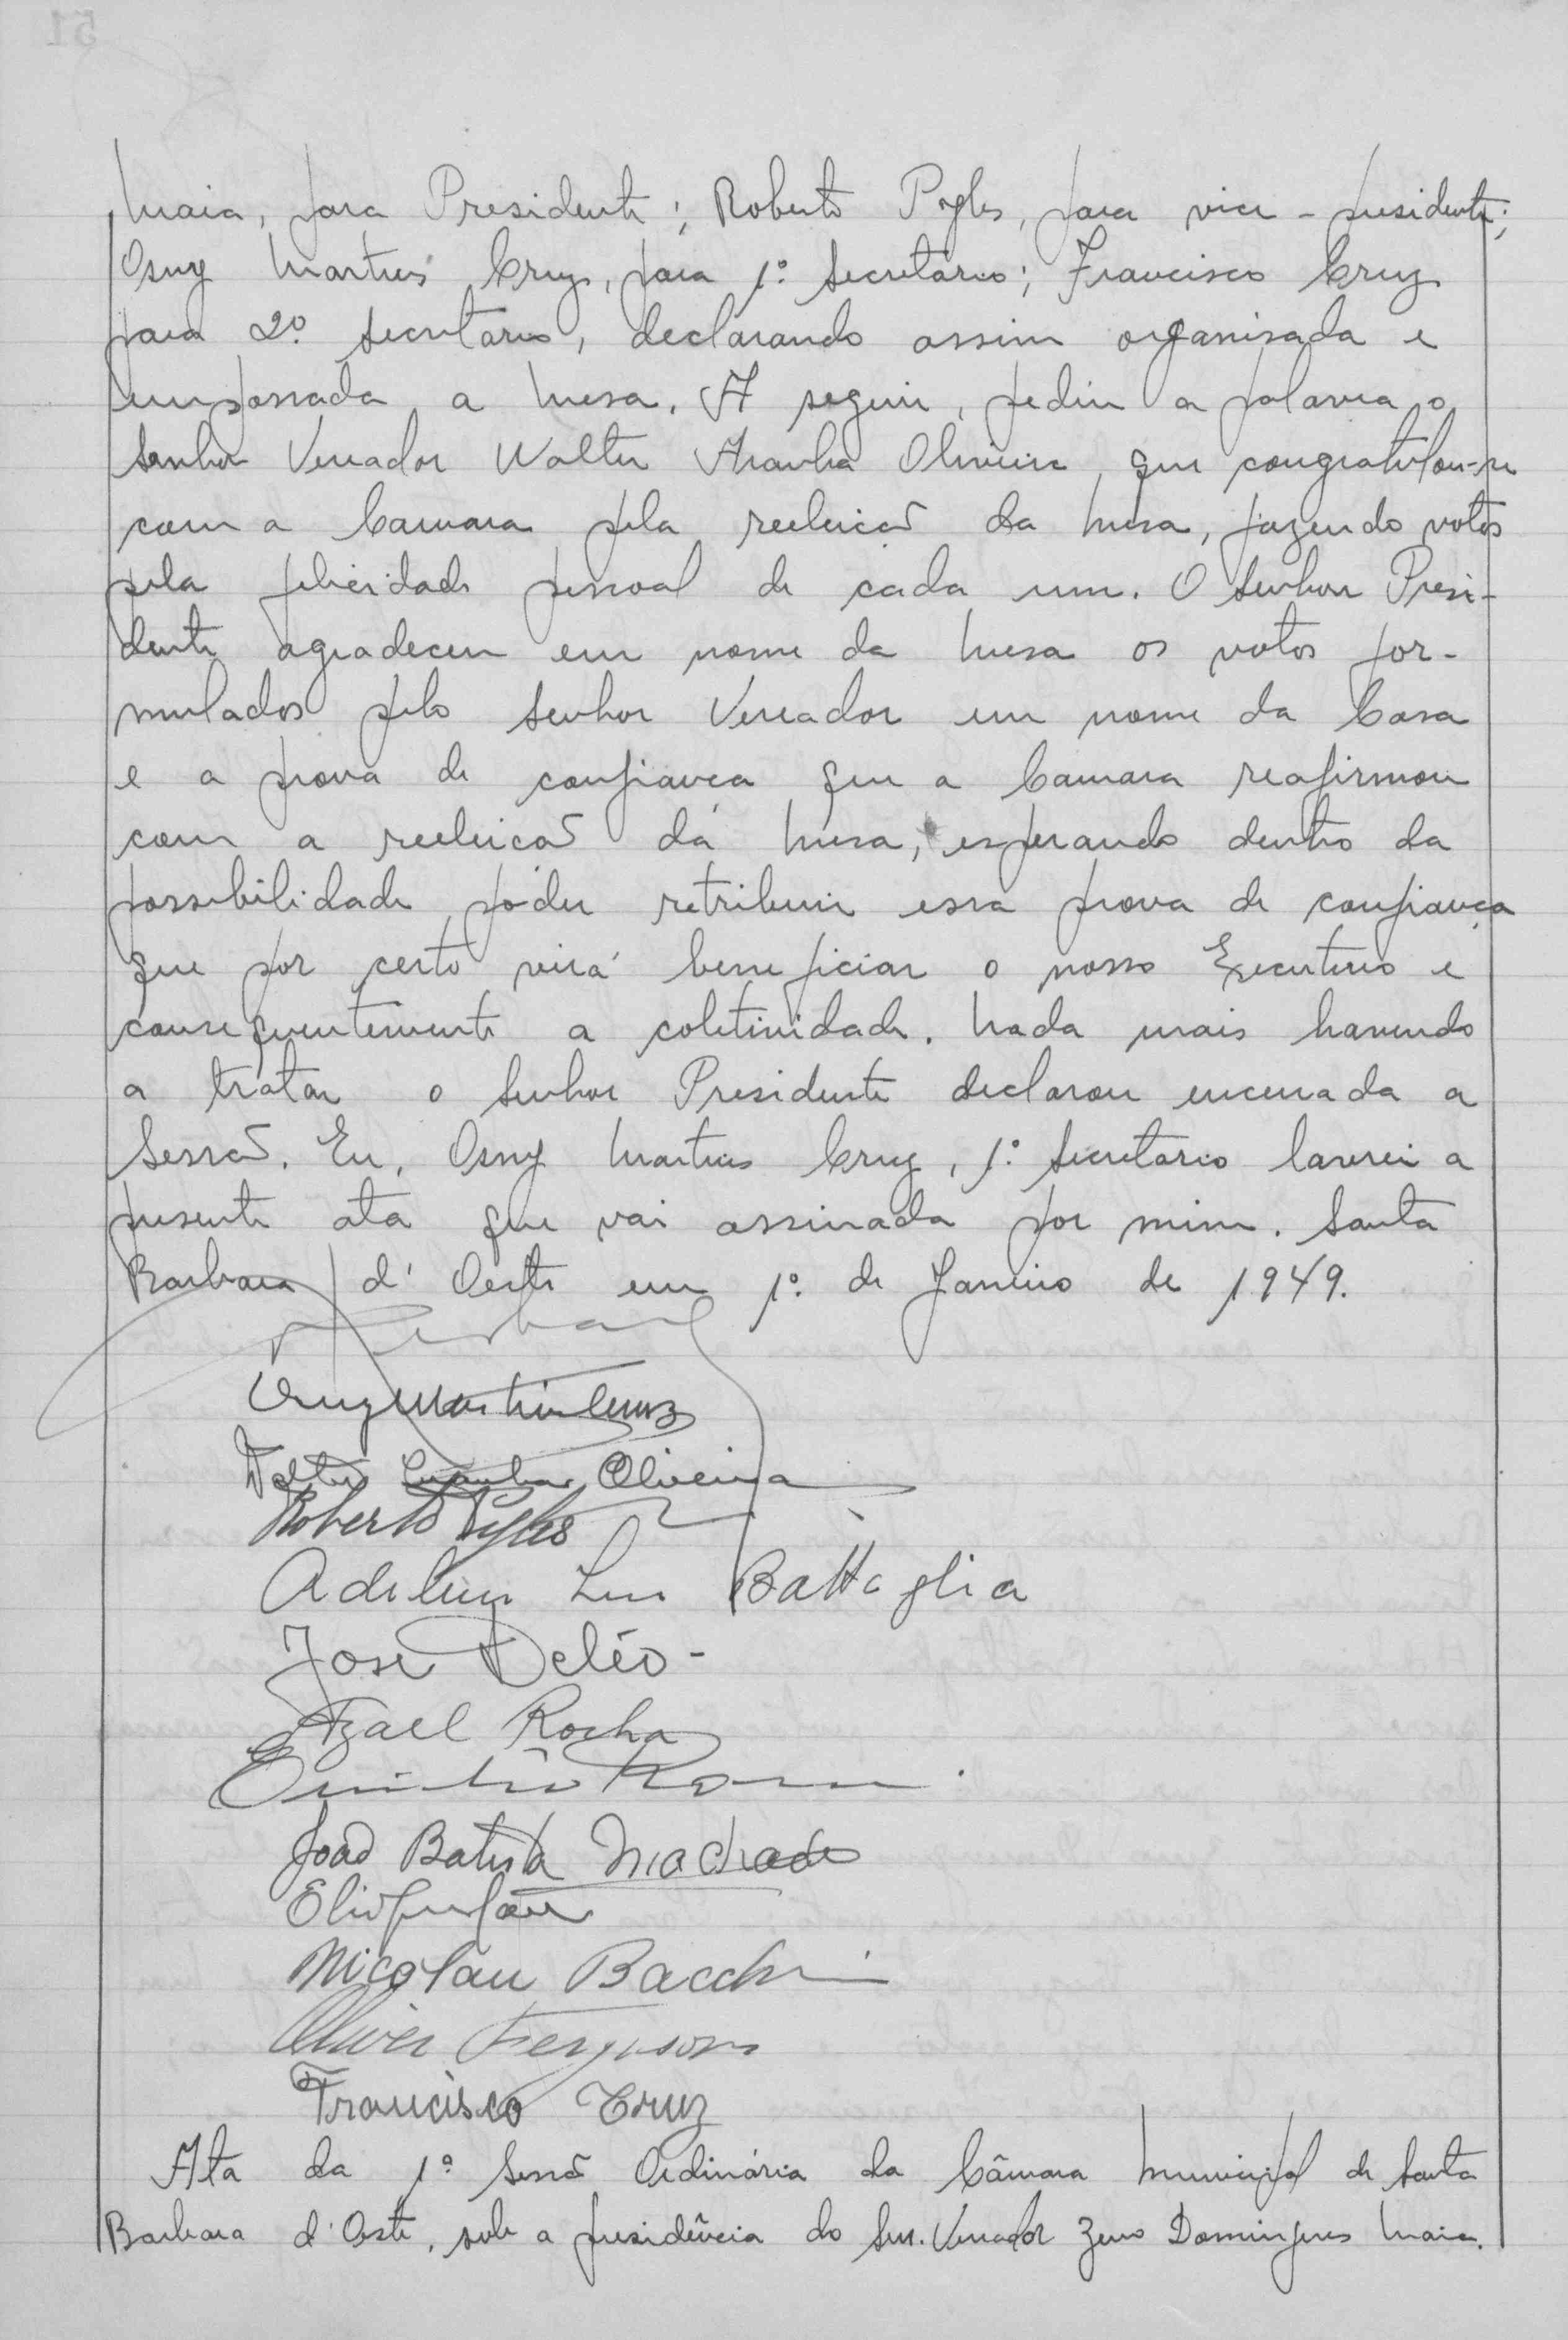 Maia, para Presidente; Roberto Pyles, para vice-presidente;
Osny Martins Cruz, para 1º secretário; Francisco Cruz
para 2º secretario, declarando assim organisada e
empossada a mesa. A seguir, pediu a palavra o
Senhor Vereador Walter Aranha Oliveira, que congratulou-se
com a Camara pela reeleição da mesa, fazendo votos
pela felicidade pessoal de cada um. O Senhor Presi-
dente agradeceu em nome da mesa os votos for-
mulados pelo Senhor Vereador em nome da Casa
e a prova de confiança que a Camara reafirmou
com a reeleicão da mesa, esperando dentro da
possibilidade, póder retribuir essa prova de confiança
que por certo virá beneficiar o nosso Executivo e
consequentemente a coletividade. Nada mais havendo
a tratar o Senhor Presidente declarou encerrada a
Sessão. Eu, Osny Martins Cruz, 1º secretario lavrei a
presente ata que vai assinada por mim. Santa
Barbara d'Oeste em 1º de Janeiro de 1949.
Osny Martins Cruz
Walter Aranha Oliveira
Roberto Pyles
Adelino Luis Battaglia
José Deléo -
Azael Rocha
Emilio Romi
João Batista Machado
Nicolau Bacchin
Oliver Ferguson
Francisco Cruz
Ata da 1ª Sessão Ordinária da Câmara Municipal de Santa
Barbara d'Oeste, sob a presidência do Snr. Vereador Zeno Domingues Maia.
51